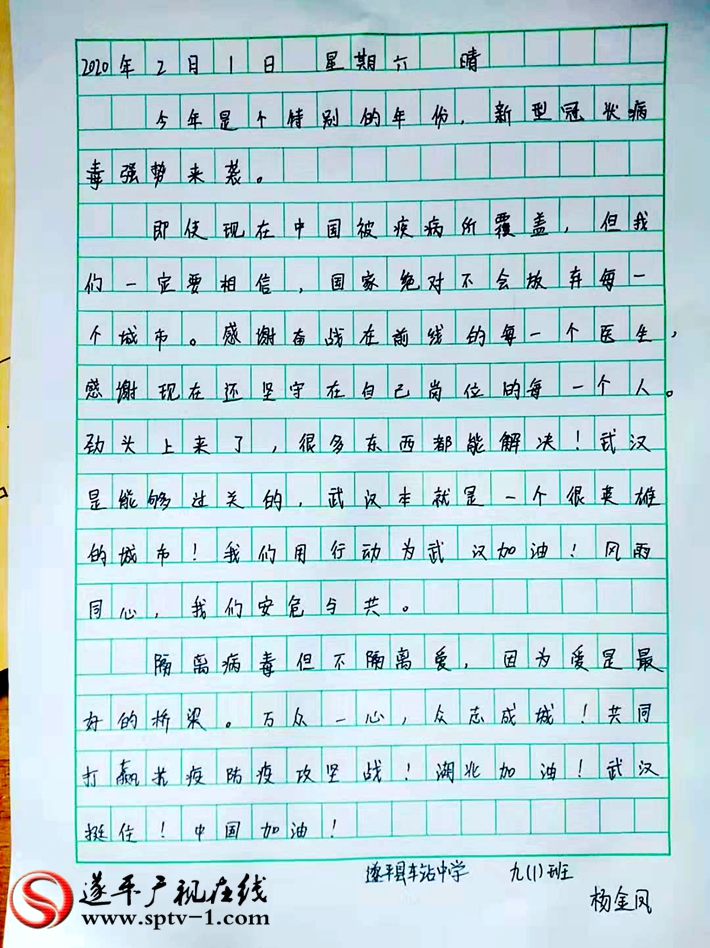 2020年2月1日 星期六 晴
今年是个特别的年份，新型冠状病
毒强势来袭。
即使现在中国被疾病所覆盖，但我
们一定要相信，国家绝对不会放弃每一
个城市。感谢奋战在前线的每一个医生，
感谢现在还坚守在自己岗位的每一个人。
劲头上来了，很多东西都能解决！武汉
是能够过关的，武汉本就是一个很英雄
的城市！我们用行动为武汉加油！风雨
同心，我们安危与共。
隔离病毒但不隔离爱，因为爱是最
好的桥梁。万众一心，众志成城！共同
打赢抗疫防疫攻坚战！湖北加油！武汉
挺住！中国加油！
遂平县车站中学 九(1)班
杨金凤
遂平广视在线
www.sptv-1.com